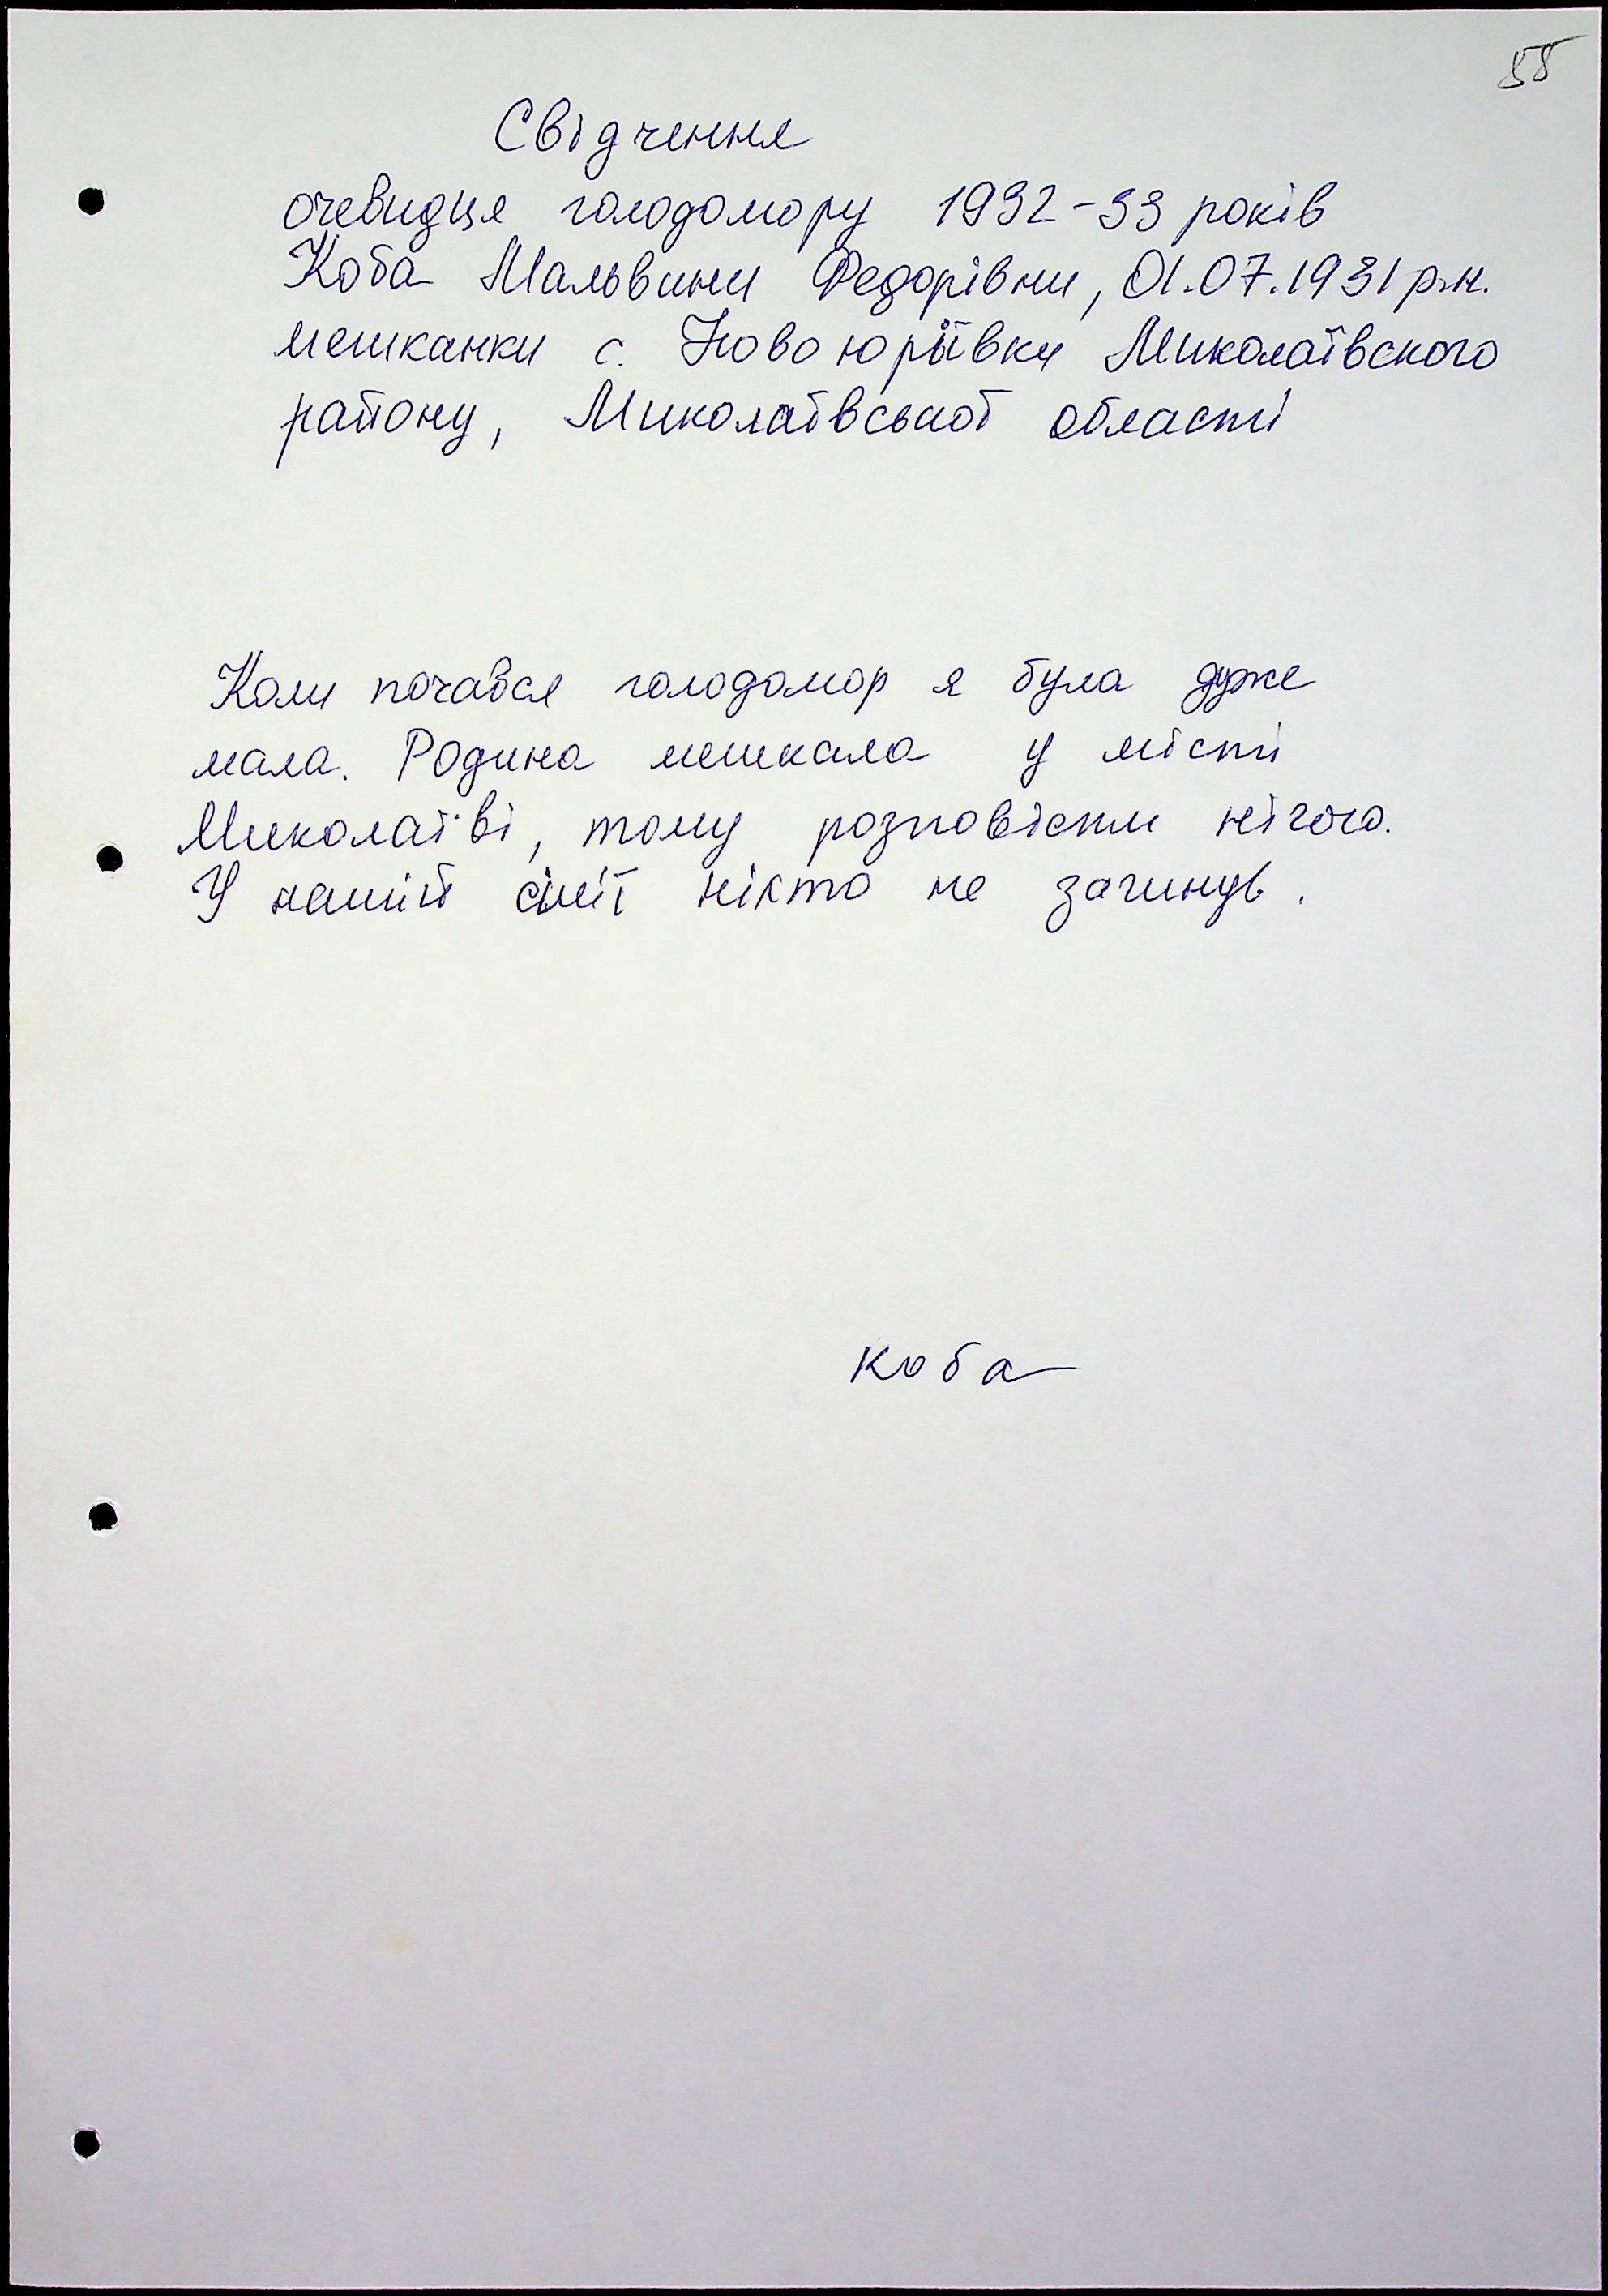 55
Свідчення
очевидця голодомору 1932-33 років
Коба Мальвини Федорівни, 01.07.1931 р.н.
мешканки с. Новоюріївки Миколаївского
району, Миколаївської області
Коли почався голодомор я була дуже
мала. Родина мешкала у місті
Миколаїві, тому розповісти нічого.
У нашій сімї ніхто не загинув.
Коба